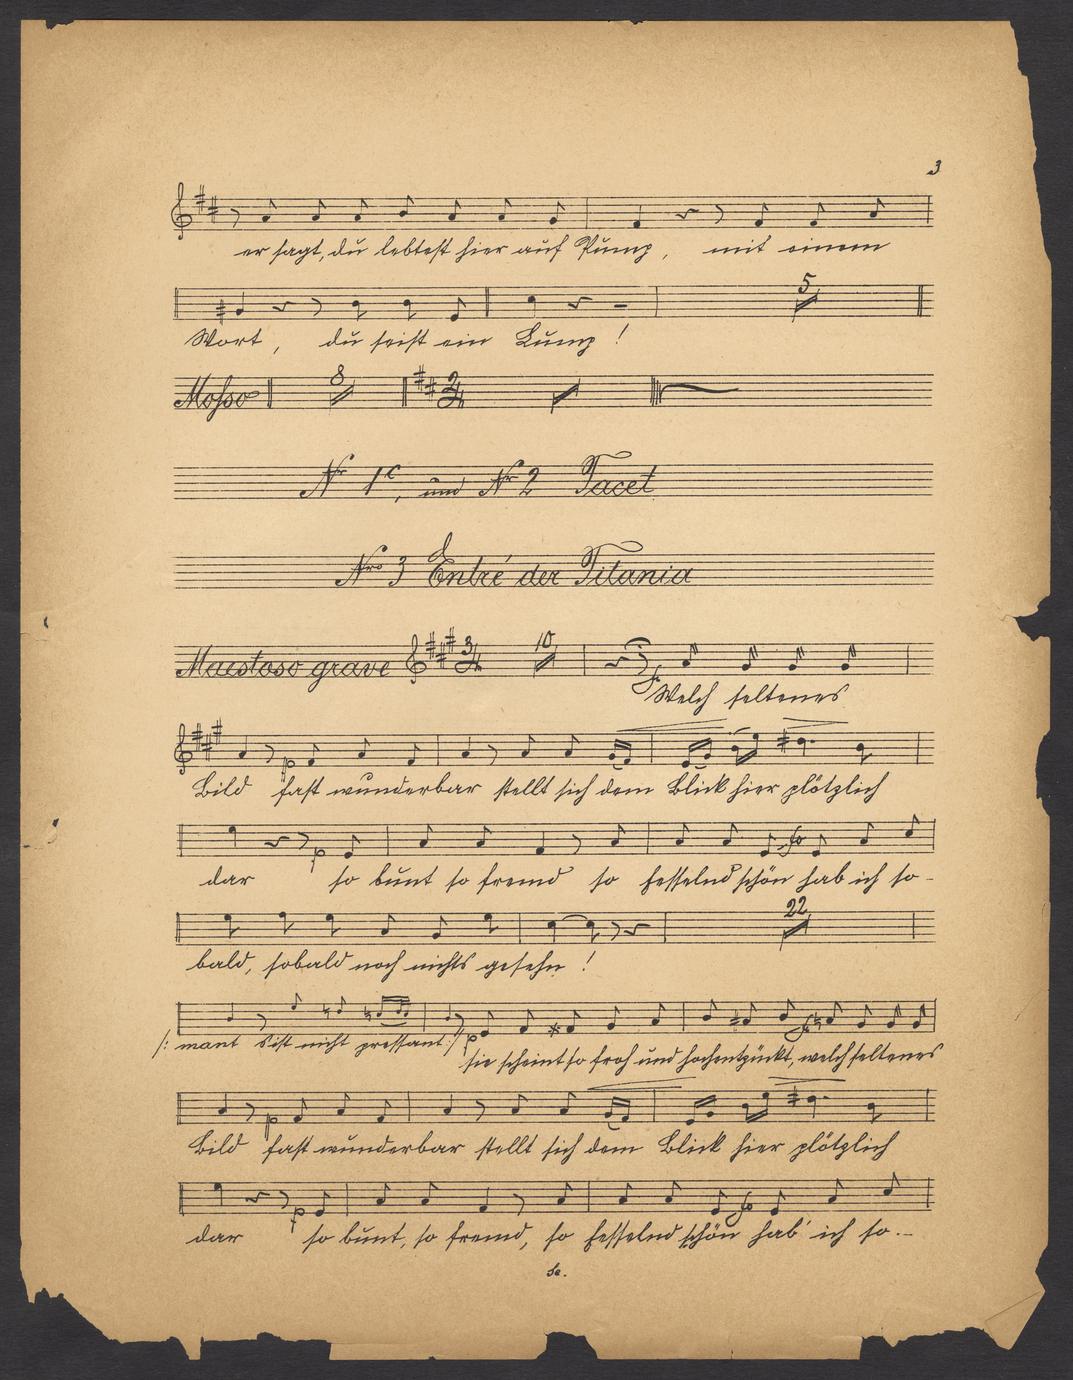 3
er sagt, du lebtest hier auf Pump, mit einem
5
Wort, du seist ein Lump!
Mosso 8 2/4
Nr 1c, und Nr 2 Tacet
Nro 3 Entré der Titania
Maestoso grave 3/4 10
Welch seltenes
Bild fast wunderbar stellt sich dem Blick hier plötzlich
dar so bunt so fremd so fesselnd schön hab ich so-
22
bald, sobald noch nichts gesehn!
/: mant s'ist nicht pressant :/
sie scheint so froh und hochentzückt, welch seltenes
Bild fast wunderbar stellt sich dem Blick hier plötzlich
dar so bunt, so fremd, so fesselnd schön hab' ich so.-